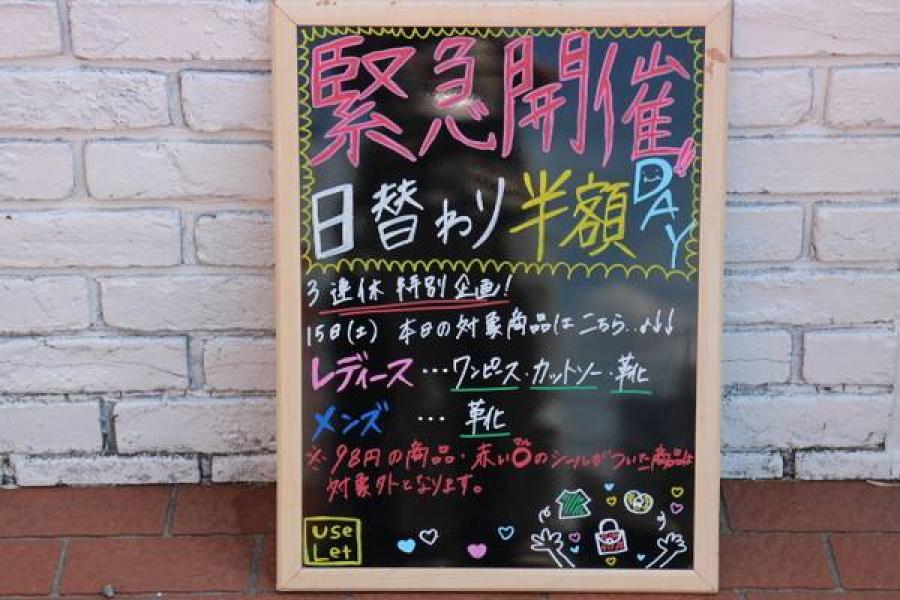 緊急開催!!
日替わり半額DAY
3連休特別企画!
15日(土) 本日の対象商品はこちら…↓↓↓
レディース …ワンピース・カットソー・靴
メンズ … 靴
※98円の商品・赤い〇のシールがついた商品は
対象外となります。
use
Let